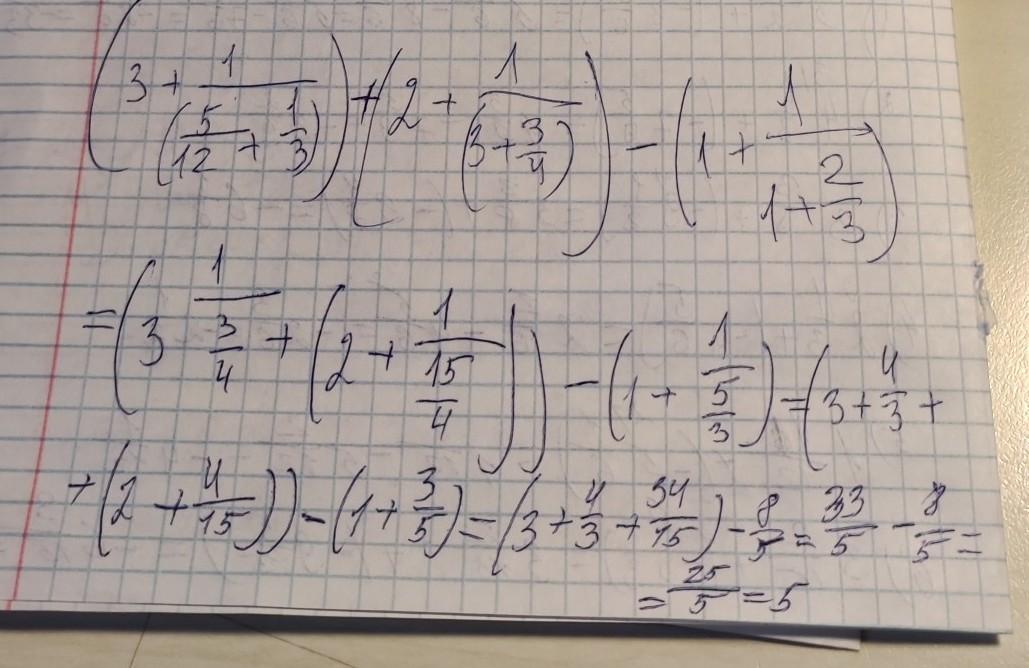 (3 + 1/(5/12 + 1/3)) + (2 + 1/(3 + 3/4)) - (1 + 1/(1 + 2/3))
= (3 1/(3/4) + (2 + 1/(15/4))) - (1 + 1/(5/3)) = (3 + 4/3 +
+ (2 + 4/15)) - (1 + 3/5) = (3 + 4/3 + 34/15) - 8/5 = 33/5 - 8/5 =
= 25/5 = 5